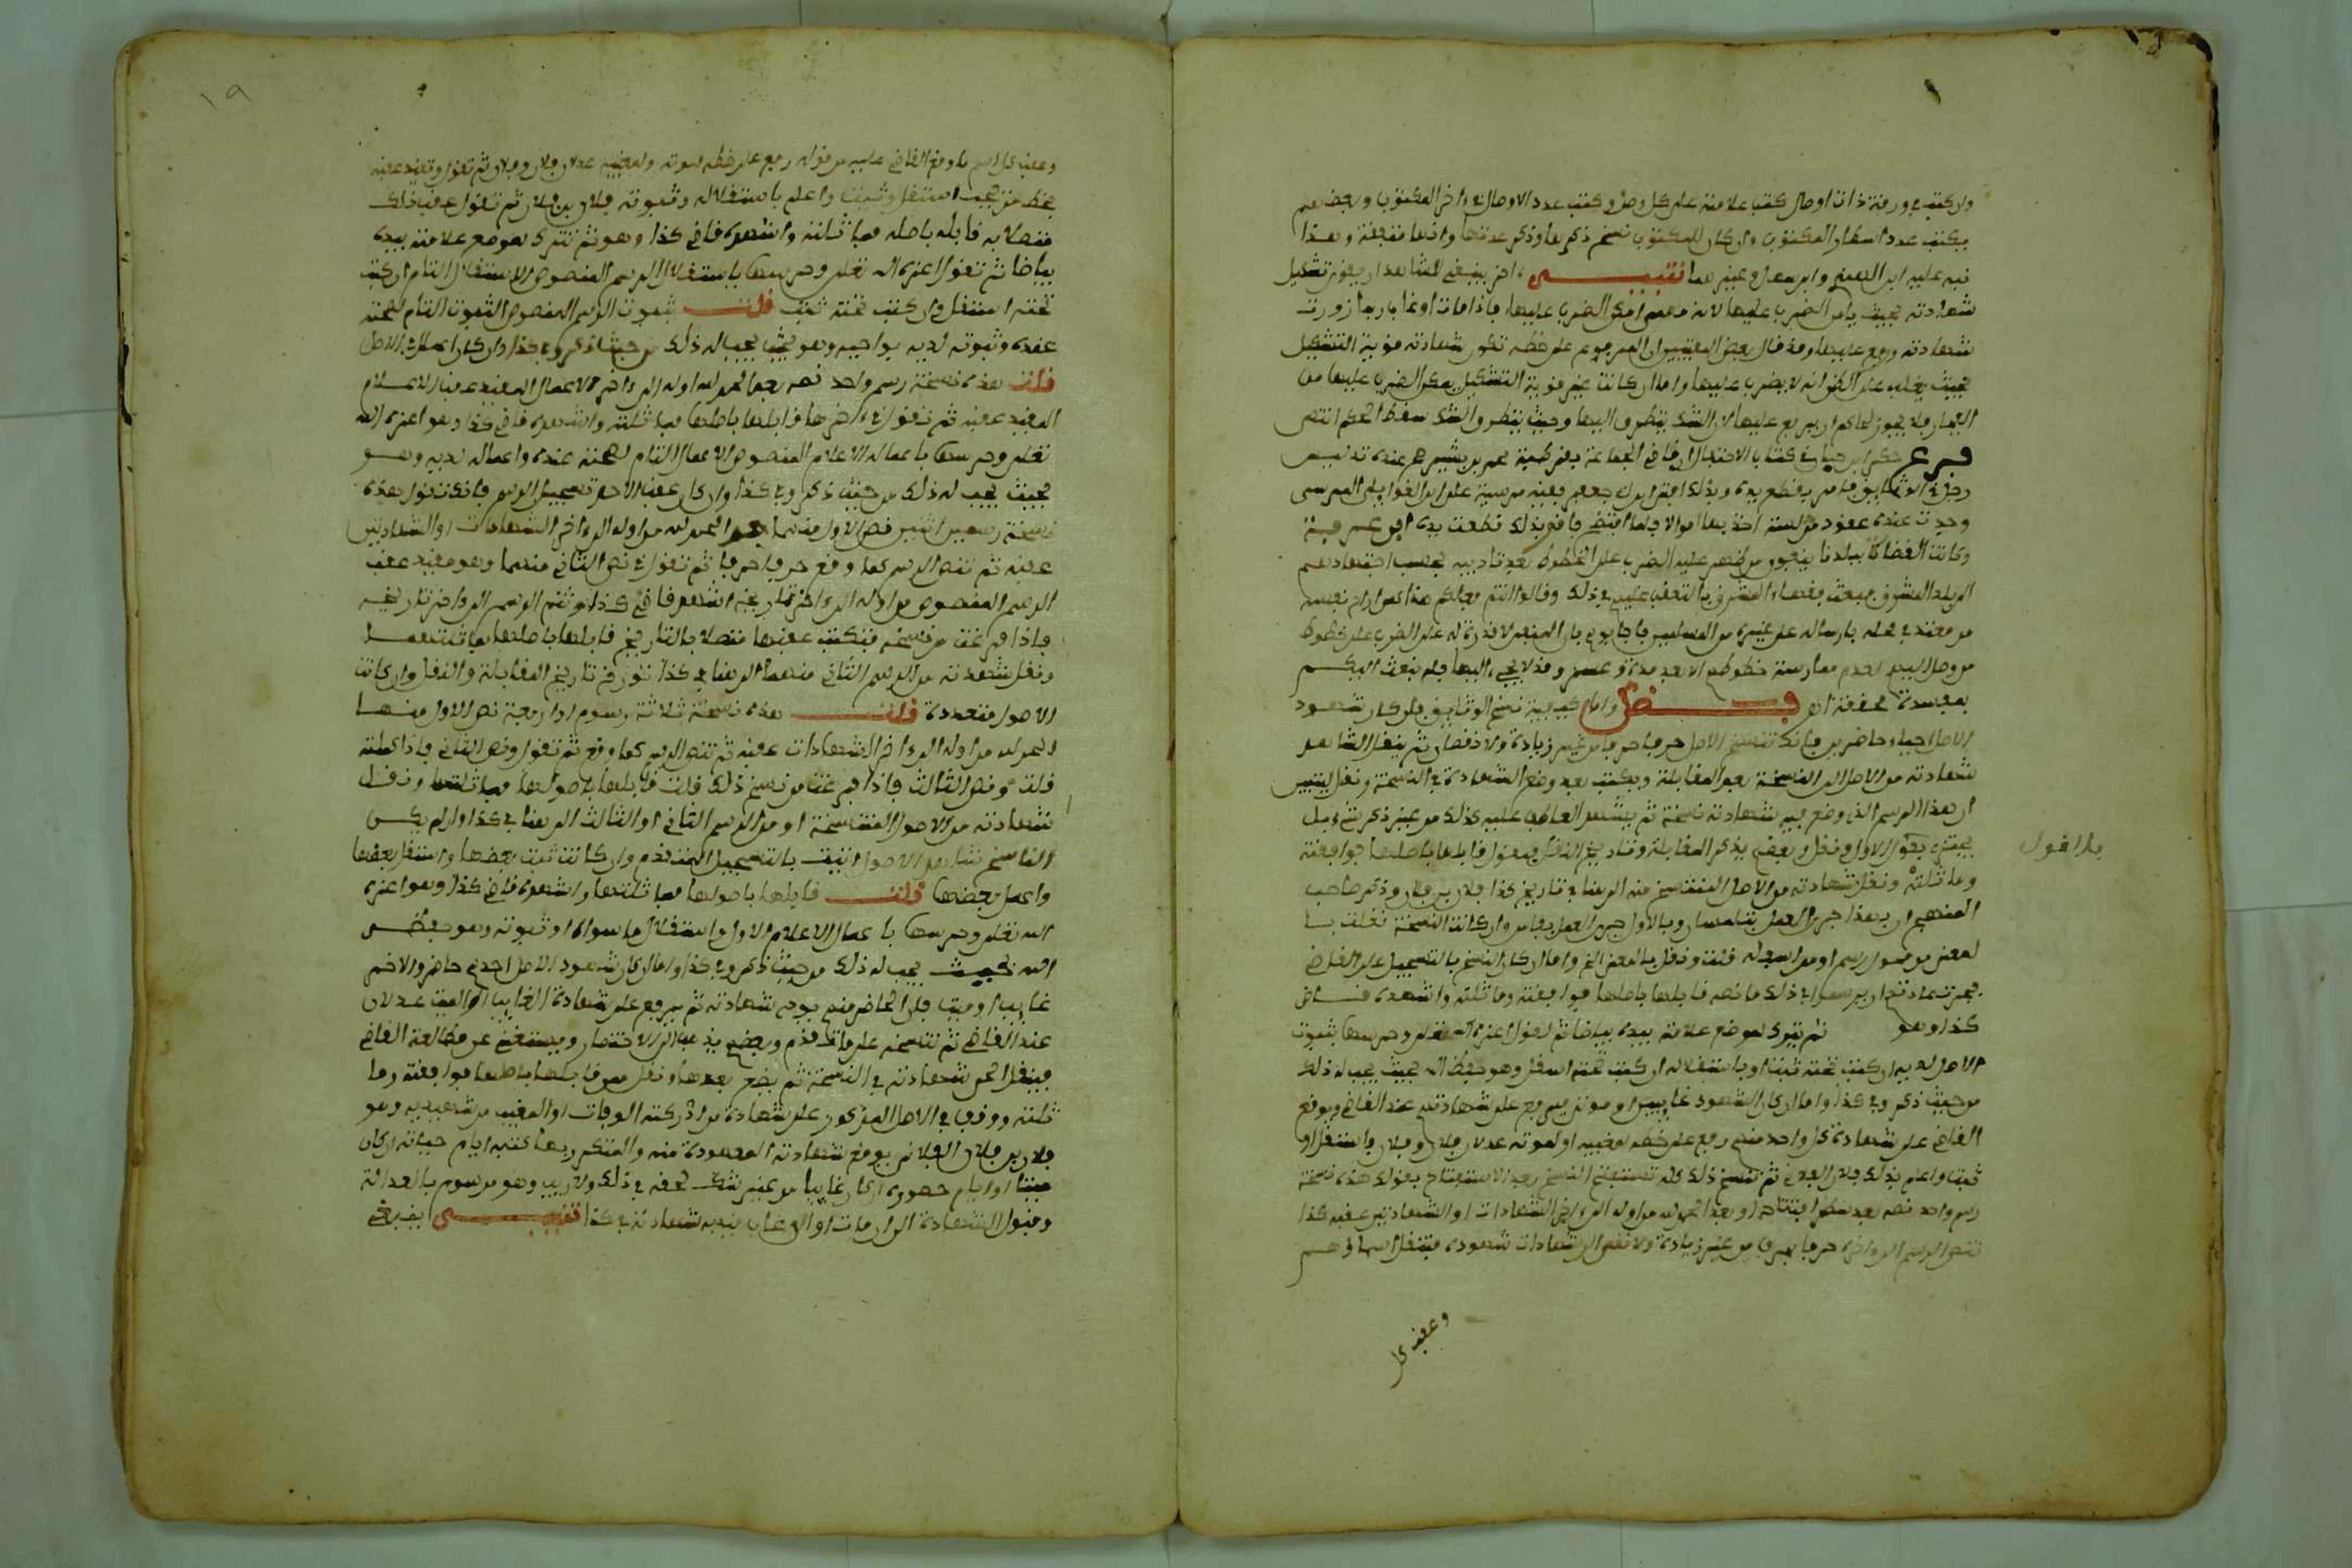 وان كتب في ورقة ذات اوصال كتب علامته على كل وصل وكتب عدد الاوصال في ءاخر المكتوب وبعضهم
يكتب عدد اسطار المكتوب وان كان للمكتوب نسخ ذكرها وذكر عدتها وانها متفقة وهذا
نبه عليه ابن الهندي وابن وغيرهما تنبيه اخر ينبغي للشاهد ان يقوي تشكيل
شهادته بحيث يامن الضرب عليها لانه مهما امكن الضرب عليها فاذا مات او غاب ربما زورت
شهادته ورفع عليها وقد قال بعض المفتيين ان المرفوع على خطه تكون شهادته قوية التشكيل
بحيث يغلب على الظن انه لا يضرب عليها واما ان كانت غير قوية التشكيل يمكن الضرب عليها من
الفجار فلا يجوز لحاكم ان يرفع عليها لان الشك يتطرق اليها وحيث يتطرق الشك سقط الحكم انتهى
فرع حكى ابن حيان في كتاب الاحتفال ان قاضي الجماعة بقرطبة محمد بن بشير ظهر عنده تدليس
رجل في الوثايق فامر بقطع يده وبذلك افتى ابو جعفر فقيه مرسية على ابن المرسي
وجدت عنده عقود مدلسة اخذ بها اموالا فلما افتضح فافتي بذلك قطعت يده ابن عرفة
وكانت القضاة ببلدنا من ظهر عليه الضرب على الخطوط بعد تاديبه بحسب اجتهادهم
الى بلد المشرق فبعث فقهاء المشرق بالتعقب عليهم في ذلك وقالوا انتم
من معتد في محله بارساله على غيره من المسلمين فاجابوهم بان المنفي لا قدرة له على الضرب على خطوط
من وصل اليه لعدم ممارسة خطوطهم الا بعد مدة وعسر وقد لا يجيء اليها فلم نبعث اليكم
بمفسدة محققة انتهى فصل واما كيفية نسخ الوثايق فان كان شهود
الاصل احياء حاضرين فانك تنسخ الاصل حرفا حرفا من غير زيادة ولا نقصان ثم ينقل الشاهد
شهادته من الاصل الى النسخة بعد المقابلة ويكتب بعد وضع الشهادة في النسخة ونقل ليتبين
ان هذا الرسم الذي وضع فيه شهادته نسخة ثم يشهد العاطف عليه كذلك من غير ذكر شيء بل
يجتزي بقول الاول ونقل وبعضهم يذكر المقابلة وتاريخ النقل فيقول قابلها باصلها فوافقته
وماثلته ونقل شهادته من الاصل المنتسخ منه الى هنا في تاريخ كذا فلان بن فلان وذكر صاحب
المنهج ان بهذا جرى العمل بتلمسان وبالاول جرى العمل بفاس وان كانت النسخة نقلت بالمعنى
لمعنى من فصول رسم او من اسجاله قلت ونقل بالمعنى الخ واما ان كان النسخ بالتسجيل على القاضي
فجرت عادتهم ان يرسموا في ذلك ما نصه قابلها باصلها فوافقته وماثلته واشهده قاضي
كذا وهو ثم تترك لموضع علامته بيده بياضا ثم تقول اعزه الله تعلى وحرسها بثبوت
الاصل لديه ان كتب تحته ثبت او باستقلاله ان كتب تحته استقل وهو حفظه الله بحيث يجب له ذلك
من حيث ذكر وفي كذا واما ان كان الشهود غايبين او موتى فيرفع على شهادتهم عند القاضي ويوقع
القاضي على شهادة كل واحد منهم رفع على خطه لمغيبه او لموته عدلان فلان وفلان واستقل او
ثبت واعلم بذلك فلان الفلاني ثم تنسخ ذلك كله تستفتح النسخ بعد الاستفتاح بقولك هذه نسخة
رسم واحد نصه بعد افتتاحه او بعد الحمد لله من اوله الى ءاخر الشهادات او الشهادتين عقبه كذا
تنص الرسم الى ءاخره حرفا بحرف من غير زيادة ولا نقص الى شهادات شهوده فتنقل اسماؤهم
بلا اقول
وعقب كل
١٩
وعقب كل اسم ما وقع القاضي عليه من قوله رفع على خطه لموته ولمغيبه عدلان فلان وفلان ثم تقول وتقيد عقبه
بخط من يجب استقل وثبت واعلم باستقلاله وثبوته فلان بن فلان ثم تقول عقب ذلك
متصلا به قابله باصله فماثلته واشهده قاضي كذا وهو ثم تترك لموضع علامته بيده
بياضا ثم تقول اعزه الله تعلى وحرسها باستقلال الرسم المنصوص الاستقلال التام ان كتب
تحته استقل وان كتب تحته ثبت قلت بثبوت الرسم المنصوص الثبوت التام لصحته
عنده وثبوته لديه بواجبه وهو بحيث يجب له ذلك من حيث ذكر وفي كذا وان كان اعمل في الاصل
قلت هذه نسخة رسم واحد نصه بعد الحمد لله اوله الى ءاخره الاعمال المقيد عقب الاعلام
المقيد عقبه ثم تقول في ءاخرها قابلها باصلها فماثلته واشهده قاضي كذا وهو اعزه الله
تعلى وحرسها باعماله الاعلام المنصوص الاعمال التام لصحته عنده واعماله لديه وهو
بحيث يجب له ذلك من حيث ذكر وفي كذا وان كان عقب الاصل تسجيل الرسم فانك تقول هذه
نسخة رسمين اثنين نص الاول منهما بعد الحمد لله من اوله الى ءاخر الشهادات او الشهادتين
عقبه ثم تنص الرسم كما وقع حرفا حرفا ثم تقول في نص الثاني منهما وهو مقيد عقب
الرسم المنصوص من اوله الى ءاخر تاريخه اشهد قاضي كذا ثم تتم الرسم الى ءاخر تاريخه
فاذا فرغت من نسخه فتكتب عقبها متصلا بالتاريخ قابلها باصلها فماثلتهما
ونقل شهدته من الرسم الثاني منهما الى هنا في كذا تؤرخ تاريخ المقابلة والنقل وان كانت
الاصول متعددة قلت هذه نسخة ثلاثة رسوم او اربعة نص الاول منها
الحمد لله من اوله الى ءاخر الشهادات عقبه ثم تنص الرسم كما وقع ثم تقول ونص الثاني فاذا كملته
قلت ونص الثالث فاذا فرغت من نسخ ذلك قلت قابلها باصولها فماثلتها ونقل
شهادته من الاصول المنتسخة او من الرسم الثاني او الثالث الى هنا في كذا وان لم يكن
الناسخ شاهد الاصول اتيت بالتسجيل المتقدم وان كانت ثبت بعضها واستقل بعضها
واعمل بعضها قلت قابلها باصولها فماثلتها واشهده قاضي كذا وهو اعزه
الله تعلى وحرسها باعمال الاعلام الاول واستقلال ما سواه او ثبوته وهو حفظه
الله بحيث يجب له ذلك من حيث ذكر وفي كذا واما ان كان شهود الاصل احدهم حاضر والاخر
غايبا او ميت فان الحاضر منهم يودي شهادته ثم يرفع على شهادة الغايب او الميت عدلان
عند القاضي ثم تنتسخه على ما تقدم وبعضهم يذهب الى الاختصار ويستغني عن مطالعة القاضي
فينقل الحي شهادته في النسخة ثم يضع بعدها ونقل ممن قابلها باصلها فوافقته وما
ثلته ووقف في الاصل المذكور على شهادة من ادركته الوفات او المغيب من شهيديه وهو
فلان بن فلان الفلاني بوضع شهادته المعهودة منه والمتكرر بها كتبه ايام حياته ان كان
ميتا او ايام حضوره ان كان غايبا من غير شك لحقه في ذلك ولا ريب وهو مرسوم بالعدالة
وقبول الشهادة الى ان مات او الى ان غاب قيد به شهادته في كذا تنبيه ينبغي